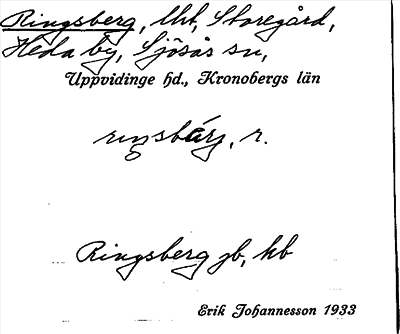 Ringsberg, lht, Storegård,
Heda by, Sjösås sn,
Uppvidinge hd., Kronobergs län
ringsbárj, r.
Ringsberg jb, kb
Erik Johannesson 1933